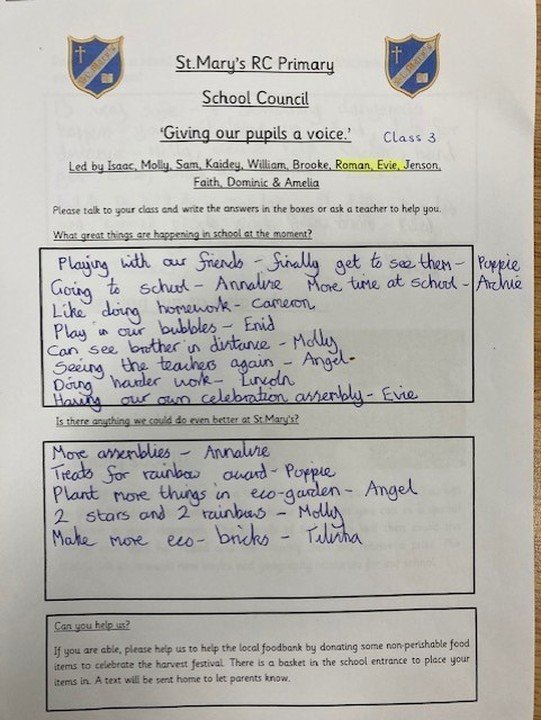 ST. MARY'S
ST. MARY'S
St.Mary's RC Primary
School Council
'Giving our pupils a voice.' Class 3
Led by Isaac, Molly, Sam, Kaidey, William, Brooke, Roman, Evie, Jenson,
Faith, Dominic & Amelia
Please talk to your class and write the answers in the boxes or ask a teacher to help you.
What great things are happening in school at the moment?
Playing with our friends - finally get to see them - Poppie
Going to school - Annalise More time at school - Archie
Like doing homework - Cameron
Play in our bubbles - Enid
Can see brother in distance - Molly
Seeing the teachers again - Angel
Doing harder work - Lincoln
Having our own celebration assembly - Evie
Is there anything we could do even better at St.Mary's?
More assemblies - Annalise
Treats for rainbow award - Poppie
Plant more things in eco-garden - Angel
2 stars and 2 rainbows - Molly
Make more eco-bricks - Tilisha
Can you help us?
If you are able, please help us to help the local foodbank by donating some non-perishable food
items to celebrate the harvest festival. There is a basket in the school entrance to place your
items in. A text will be sent home to let parents know.